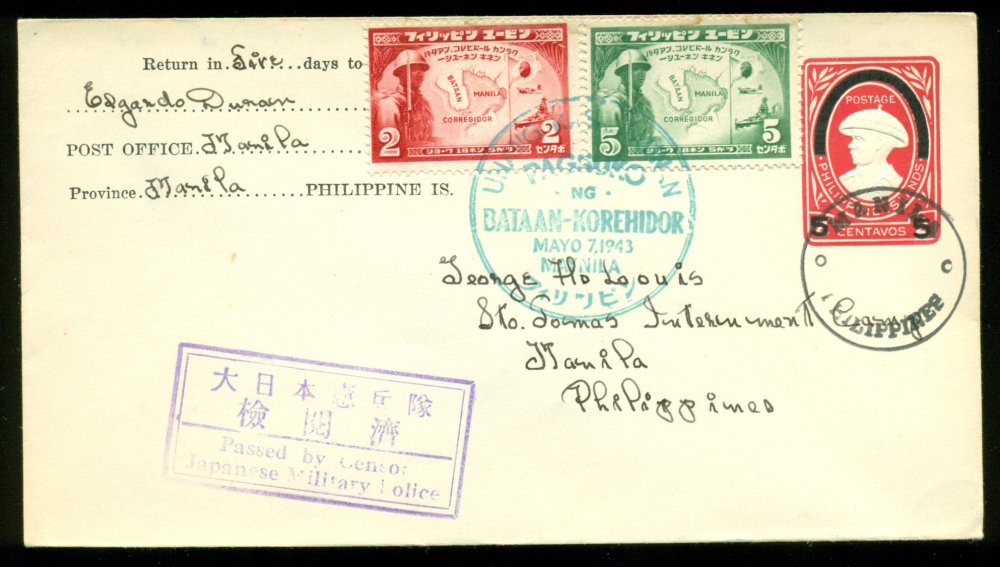 Return in Five days to
Edgardo Duran
POST OFFICE. Manila
Province. Manila PHILIPPINE IS.
フィリッピン ユービン
バタアン、コレヒドール カンラク
イッシューネン キネン
BATAAN
MANILA
CORREGIDOR
2 2
ショーワ 18ネン 5ガツ センタボ
フィリッピン ユービン
バタアン、コレヒドール カンラク
イッシューネン キネン
BATAAN
MANILA
CORREGIDOR
5 5
ショーワ 18ネン 5ガツ センタボ
POSTAGE
PHILIPPINE ISLANDS
5 5
CENTAVOS
UNANG
PAGSUKO
· NG ·
BATAAN-KOREHIDOR
MAYO 7, 1943
MAYNILA
フィリッピン
MANILA
PHILIPPINES
George Ho Louis
Sto. Tomas Internment Camp
Manila
Philippines
大日本憲兵隊
檢閲濟
Passed by Censor
Japanese Military Police